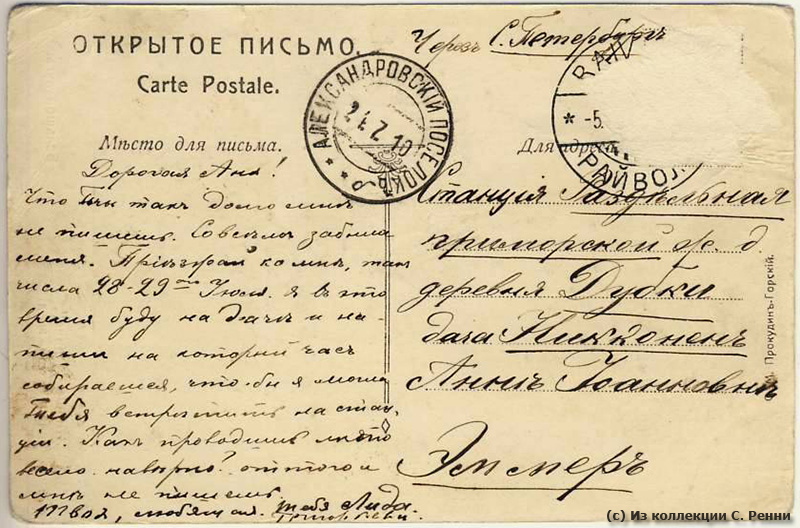 Черезъ С. Петербургъ
ОТКРЫТОЕ ПИСЬМО.
Carte Postale.
АЛЕКСАНДРОВСКІЙ ПОСЕЛОКЪ
21 7 10
RAIV
-5.
РАЙВОЛ
Мѣсто для письма.
Для адреса
Дорогая Аня!
Что ты такъ долго мнѣ
не пишешь. Совсѣмъ забыла
меня. Пріѣзжай ко мнѣ, такъ
числа 28-29го Іюля. я въ это
время буду на дачѣ и на-
пиши на который часъ
собираешся, что-бы я могла
тебя встрѣтить на стан-
ціи. Какъ проводишь лѣто
весело навѣрно? оттого и
мнѣ не пишешь
твоя, любящая тебя Лида.
Станція Раздѣльная
приморской ж. д.
деревня Дубки
дача Никконенъ
Аннѣ Іоанновнѣ
Эммеръ
Прокудинъ-Горскій.
(c) Из коллекции С. Ренни